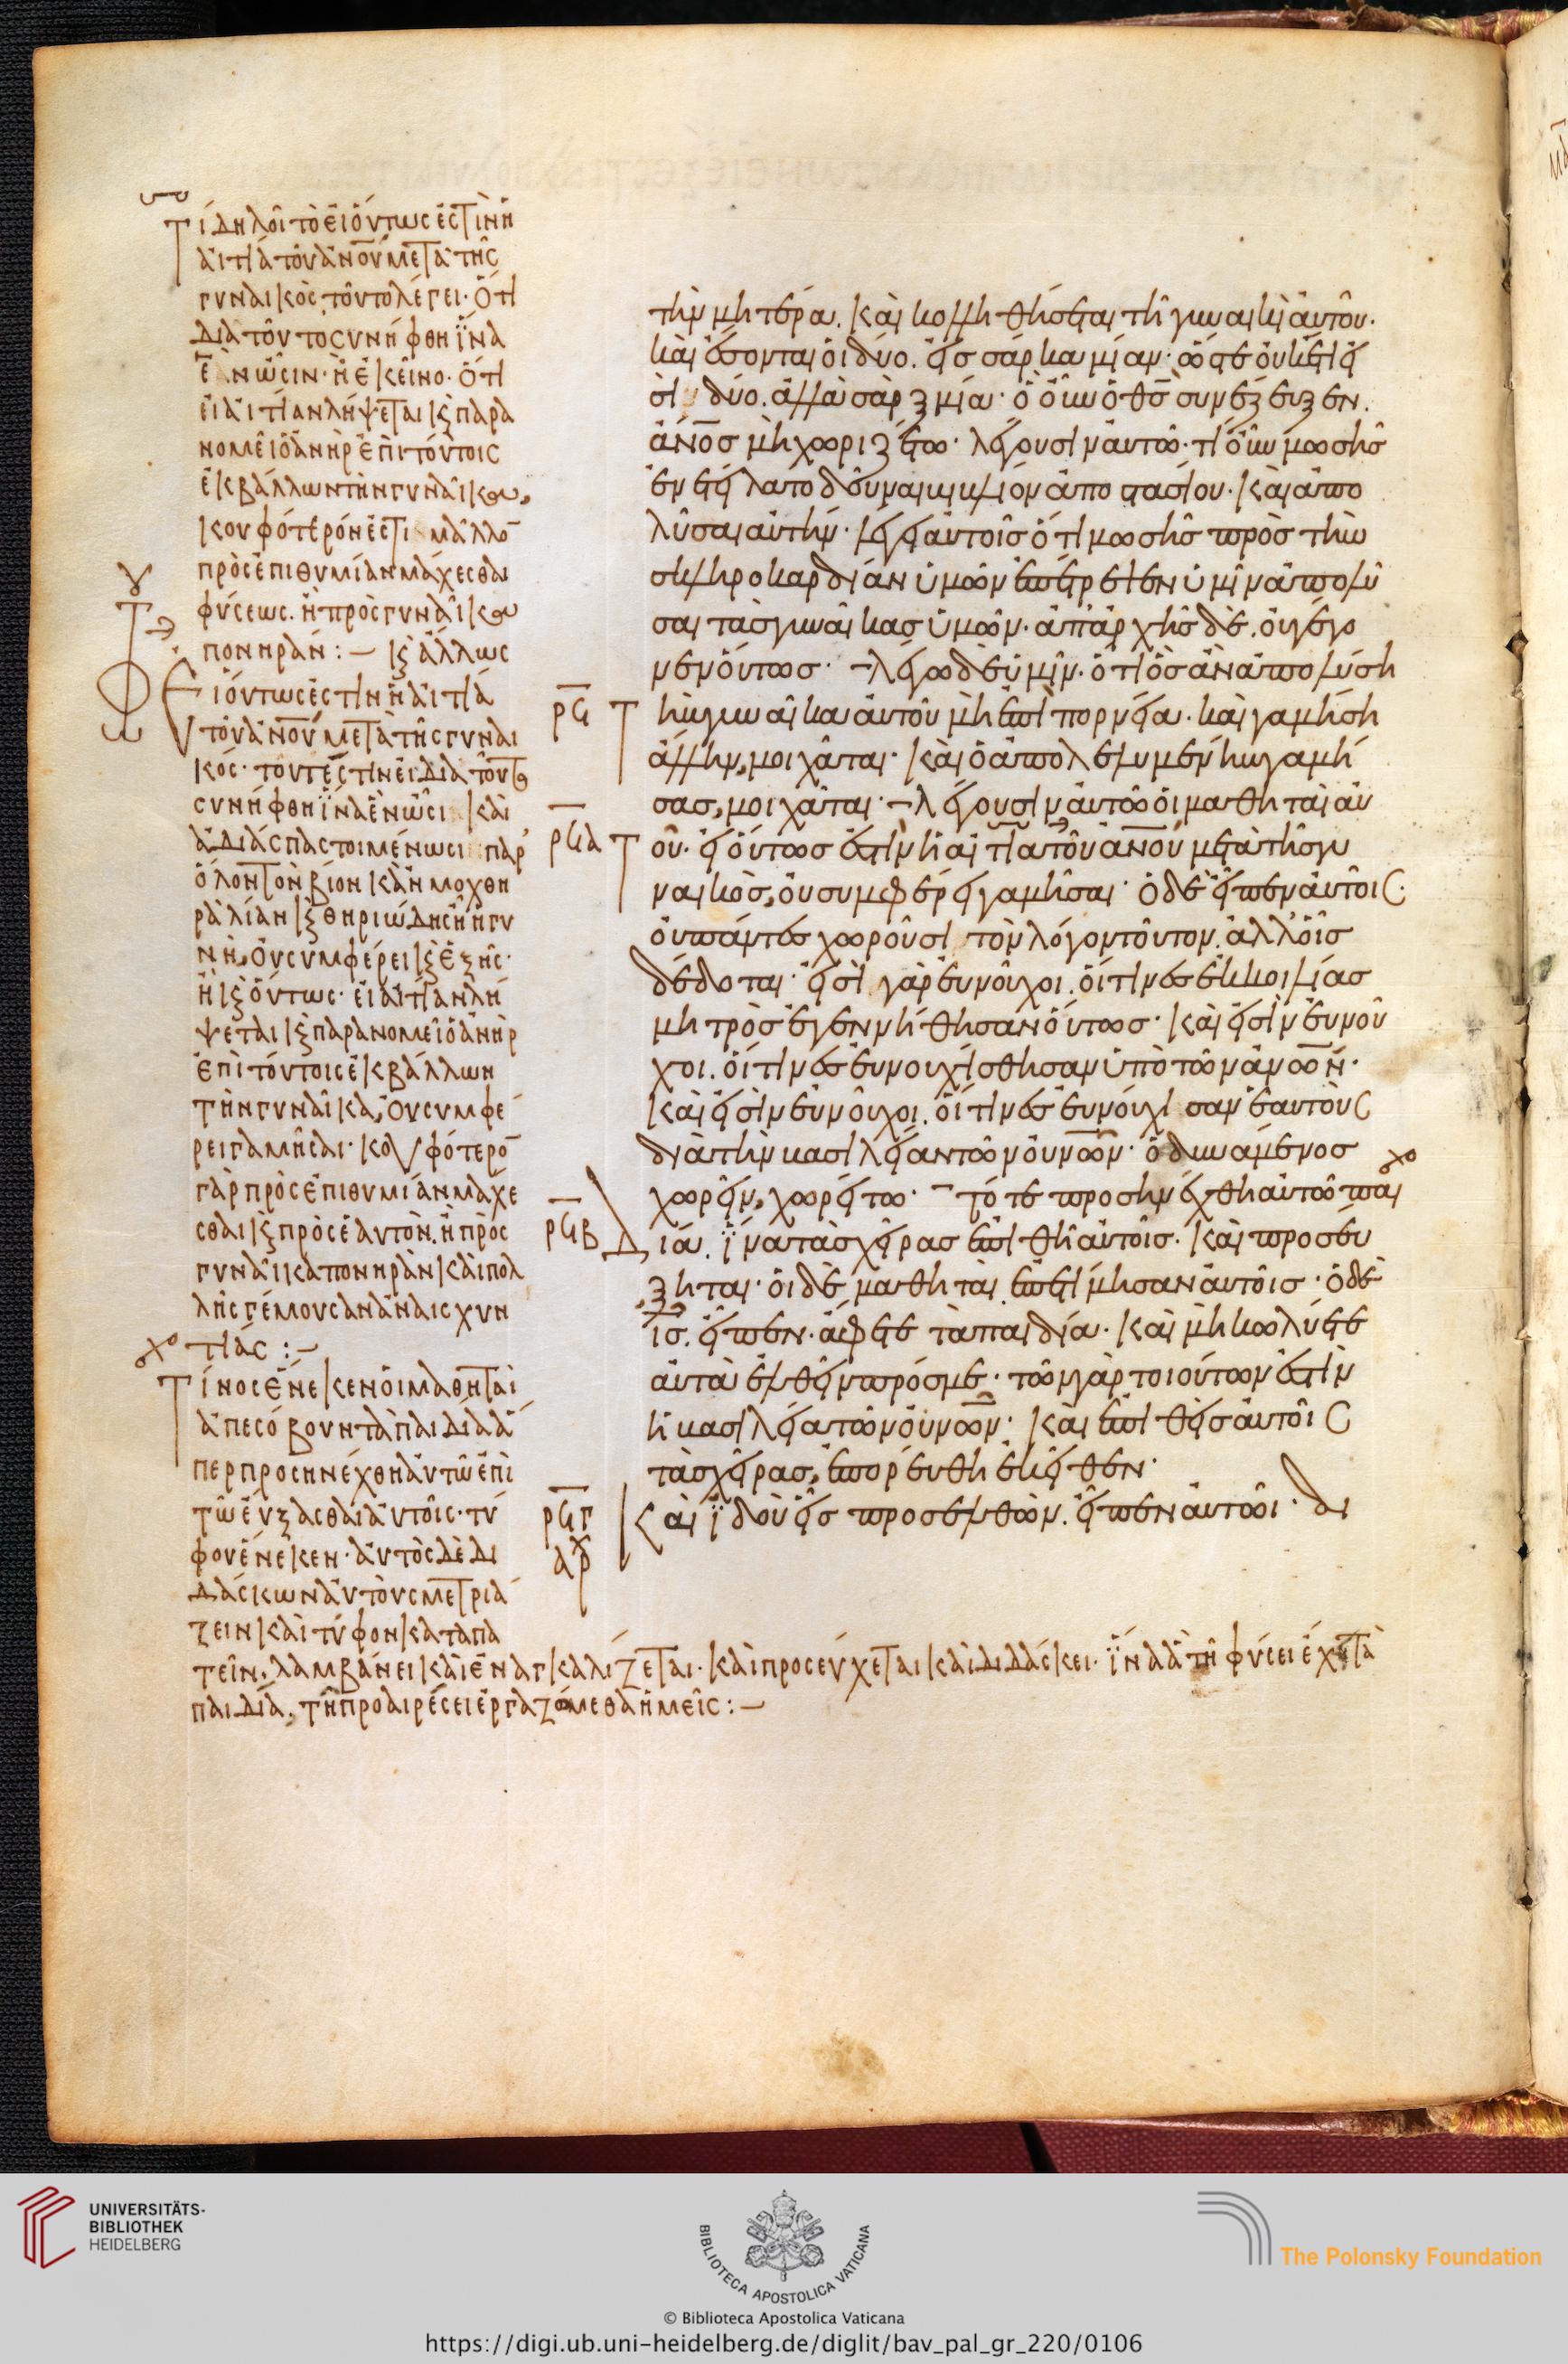 Τί δηλοῖ τὸ εἰ ὄντως ἐστὶν ἡ
αἰτία τοῦ ἀνου μετὰ τῆς
γυναικὸς τοῦτο λέγει· ὅτι
διὰ τοῦτο συνήφθη ἵνα
ἓν ὦσιν· ἢ ἐκεῖνο· ὅτι
εἰ αἰτίαν λήψεται κ παρα
νομεῖ ὁ ἀνὴρ ἐπὶ τούτοις
ἐκβάλλων τὴν γυναῖκα,
κουφότερόν ἐστι μᾶλλο
πρὸς ἐπιθυμίαν μάχεσθαι
φύσεως. ἢ πρὸς γυναῖκα
πονηράν :— κ ἄλλως
Εἰ ὄντως ἐστὶν ἡ αἰτία
τοῦ ἀνου μετὰ τῆς γυναι
κός· τουτέστιν εἰ διὰ τοῦτο
συνήφθη ἵνα ἓν ὦσι καὶ
ἀδιάσπαστοι μένωσι παρ'
ὅλον τὸν βίον κἂν μοχθη
ρὰ λίαν κ θηριώδης ἦ ἡ γυ
νή, οὐ συμφέρει κ ἑξῆς·
ἢ κ ὄντως· εἰ αἰτίαν λή
ψεται κ παρανομεῖ ὁ ἀνὴρ
ἐπὶ τούτοις ἐκβάλλων
τὴν γυναῖκα, οὐ συμφέ
ρει γαμῆσαι· κουφότερο
γὰρ πρὸς ἐπιθυμίαν μάχε
σθαι κ πρὸς ἑαυτόν. ἢ πρὸς
γυναῖκα πονηρὰν καὶ πολ
λῆς γέμουσαν ἀναισχυν
τίας :—
Τίνος ἕνεκεν οἱ μαθηταὶ
ἀπεσόβουν τὰ παιδία ἅ
περ προσηνέχθη αὐτῶ ἐπὶ
τῶ εὔξασθαι αὐτοῖς· τύ
φου ἕνεκεν· αὐτὸς δὲ δι
δάσκων αὐτοὺς μετριά
ζειν καὶ τύφον καταπα
τεῖν, λαμβάνει καὶ ἐναγκαλίζεται· καὶ προσεύχεται καὶ διδάσκει· ἵνα ἃ τῆ φύσει ἔχει τὰ
παιδία, τῆ προαιρέσει ἐργαζόμεθα ἡμεῖς :—
τὴν μητέρα. καὶ κολληθήσεται τῆ γυναικὶ αὐτοῦ·
καὶ ἔσονται οἱ δύο. εἰς σάρκα μίαν· ὥστε οὐκέτι εἰ
σὶ δύο. ἀλλὰ σὰρξ μία· ὃ οὖν ὁ θς συνέζευξεν.
ἄνος μὴ χωριζέτω· λέγουσιν αὐτῶ· τί οὖν μωσῆς
ἐνετείλατο δοῦναι βιβλίον ἀποστασίου· καὶ ἀπο
λῦσαι αὐτήν· λέγει αὐτοῖς ὅτι μωσῆς πρὸς τὴν
σκληροκαρδίαν ὑμῶν ἐπέτρεψεν ὑμῖν ἀπολῦ
σαι τὰς γυναῖκας ὑμῶν· ἀπ' ἀρχῆς δὲ. οὐ γέγο
νεν οὕτως· λέγω δὲ ὑμῖν· ὅτι ὃς ἂν ἀπολύση
ρϟ Τὴν γυναῖκα αὐτοῦ μὴ ἐπὶ πορνεία. καὶ γαμήση
ἄλλην, μοιχᾶται· καὶ ὁ ἀπολελυμένην γαμή
σας, μοιχᾶται· λέγουσιν αὐτῶ οἱ μαθηταὶ αὐ
ρϟα Τοῦ· εἰ οὕτως ἐστὶν ἡ αἰτία τοῦ ἀνου μετὰ τῆς γυ
ναικὸς, οὐ συμφέρει γαμῆσαι· ὁ δὲ εἶπεν αὐτοῖς·
οὐ πάντες χωροῦσι τὸν λόγον τοῦτον. ἀλλ' οἷς
δέδοται· εἰσὶ γὰρ εὐνοῦχοι. οἵτινες ἐκ κοιλίας
μητρὸς ἐγεννήθησαν οὕτως· καὶ εἰσὶν εὐνοῦ
χοι. οἵτινες εὐνουχίσθησαν ὑπὸ τῶν ἀνων·
καὶ εἰσὶν εὐνοῦχοι. οἵτινες εὐνούχισαν ἑαυτοὺς
διὰ τὴν βασιλείαν τῶν οὐνων· ὁ δυνάμενος
χωρεῖν, χωρείτω· τότε προσηνέχθη αὐτῶ παι
ρϟβ Δία. ἵνα τὰς χεῖρας ἐπιθῆ αὐτοῖς. καὶ προσεύ
ξηται· οἱ δὲ μαθηταὶ ἐπετίμησαν αὐτοῖς· ὁ δὲ
ις. εἶπεν· ἄφετε τὰ παιδία· καὶ μὴ κωλύετε
αὐτὰ ἐλθεῖν πρός με· τῶν γὰρ τοιούτων ἐστὶν
ἡ βασιλεία τῶν οὐνων· καὶ ἐπιθεὶς αὐτοῖς
τὰς χεῖρας, ἐπορεύθη ἐκεῖθεν·
ρϟγ Καὶ ἰδοὺ εἷς προσελθὼν. εἶπεν αὐτῶι· δι
UNIVERSITÄTS-
BIBLIOTHEK
HEIDELBERG
BIBLIOTECA APOSTOLICA VATICANA
The Polonsky Foundation
© Biblioteca Apostolica Vaticana
https://digi.ub.uni-heidelberg.de/diglit/bav_pal_gr_220/0106